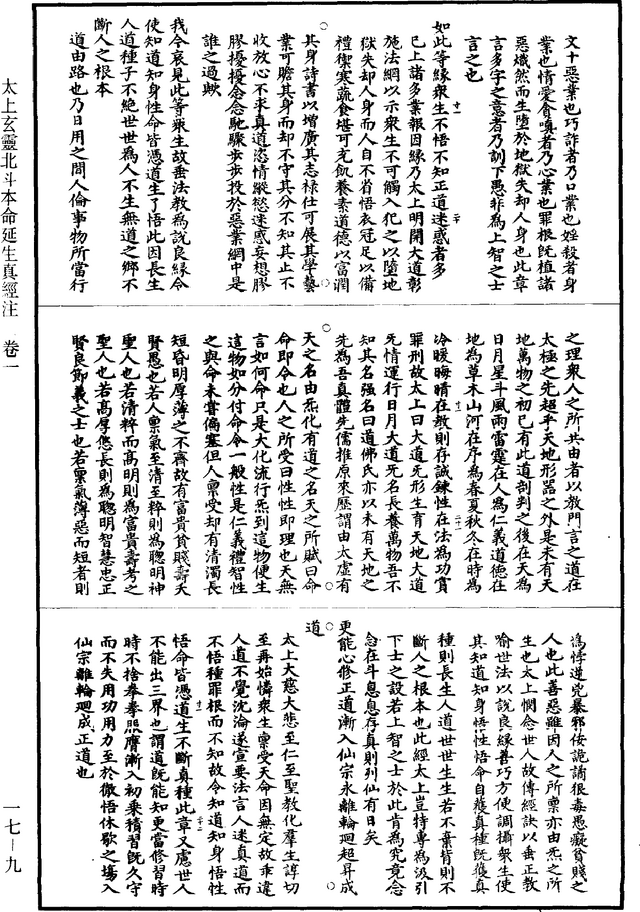 文十惡業也巧詐者乃口業也婬殺者身
業也情愛貪嗔者乃心業也罪根既植諸
惡熾然而生墮於地獄失却人身也此章
言多字之意者乃訓下愚非為上智之士
言之也
如此等緣衆生不悟不知正道迷惑者多
已上諸多業報因緣乃太上明開大道彰
施法網以示衆生不可觸入犯之以墮地
獄失却人身而人自不省悟衣冠足以備
禮禦寒蔬食堪可充飢養素道德以富潤
其身詩書以增廣其志祿仕可展其學藝
業可贍其身而却不守其分不知其止不
收放心不求真道恣情縱慾迷惑妄想膠
膠擾擾念念馳驟步步投於惡業網中是
誰之過歟
我今哀見此等衆生故垂法教為說良緣令
使知道知身性命皆憑道生了悟此因長生
人道種子不絕世世為人不生無道之鄉不
斷人之根本
道由路也乃日用之間人倫事物所當行
之理衆人之所共由者以教門言之道在
太極之先超乎天地形器之外是未有天
地萬物之初已有此道剖判之後在天為
日月星斗風雨雷霆在人為仁義道德在
地為草木山河在序為春夏秋冬在時為
冷暖晦晴在教則存誠鍊性在法為功賞
罪刑故太上曰大道無形生育天地大道
無情運行日月大道無名長養萬物吾不
知其名強名曰道佛氏亦以未有天地之
先為吾真體先儒推原來歷謂由太虛有
天之名由炁化有道之名天之所賦曰命
命即令也人之所受曰性性即理也天無
言如何命只是大化流行炁到這物便生
這物如分付命令一般性是仁義禮智性
之與命未嘗偏塞但人稟受却有清濁長
短昏明厚薄之不齊故有富貴貧賤壽夭
賢愚也若人稟氣至清至粹則為聰明神
聖人也若清粹而高明則為富貴壽考之
聖人也若高厚悠長則為聰明智慧忠正
賢良節義之士也若稟氣薄惡而短者則
為悖逆兇暴邪佞詭譎狠毒愚癡貧賤之
人也此善惡雖因人之所稟亦由炁之所
生也太上憫念世人故傳經訣以垂正教
喻世法以說良緣善巧方便調攝衆生使
其知道知身悟性悟命自獲真種既獲真
種則長生人道世世生生若不棄背則不
斷人之根本也此經太上豈特專為汲引
下士之設若上智之士於此肯為究竟念
念在斗息息存真則列仙有日矣
更能心修正道漸入仙宗永離輪廻超昇成
道
太上大慈大悲至仁至聖教化羣生諄切
至再始憐衆生稟受天命因無定故乖違
人道不覺沈淪遂宣要法言人迷真道而
不悟種罪根而不知故令知道知身悟性
悟命皆憑道生不斷真種此章又慮世人
不能出三界也謂道既能知更當修習時
時不捨拳拳服膺漸入初乘積習既久守
而不失用功用力至於徹悟休歇之場入
仙宗離輪廻成正道也
太上玄靈北斗本命延生真經注　卷一
一七—九